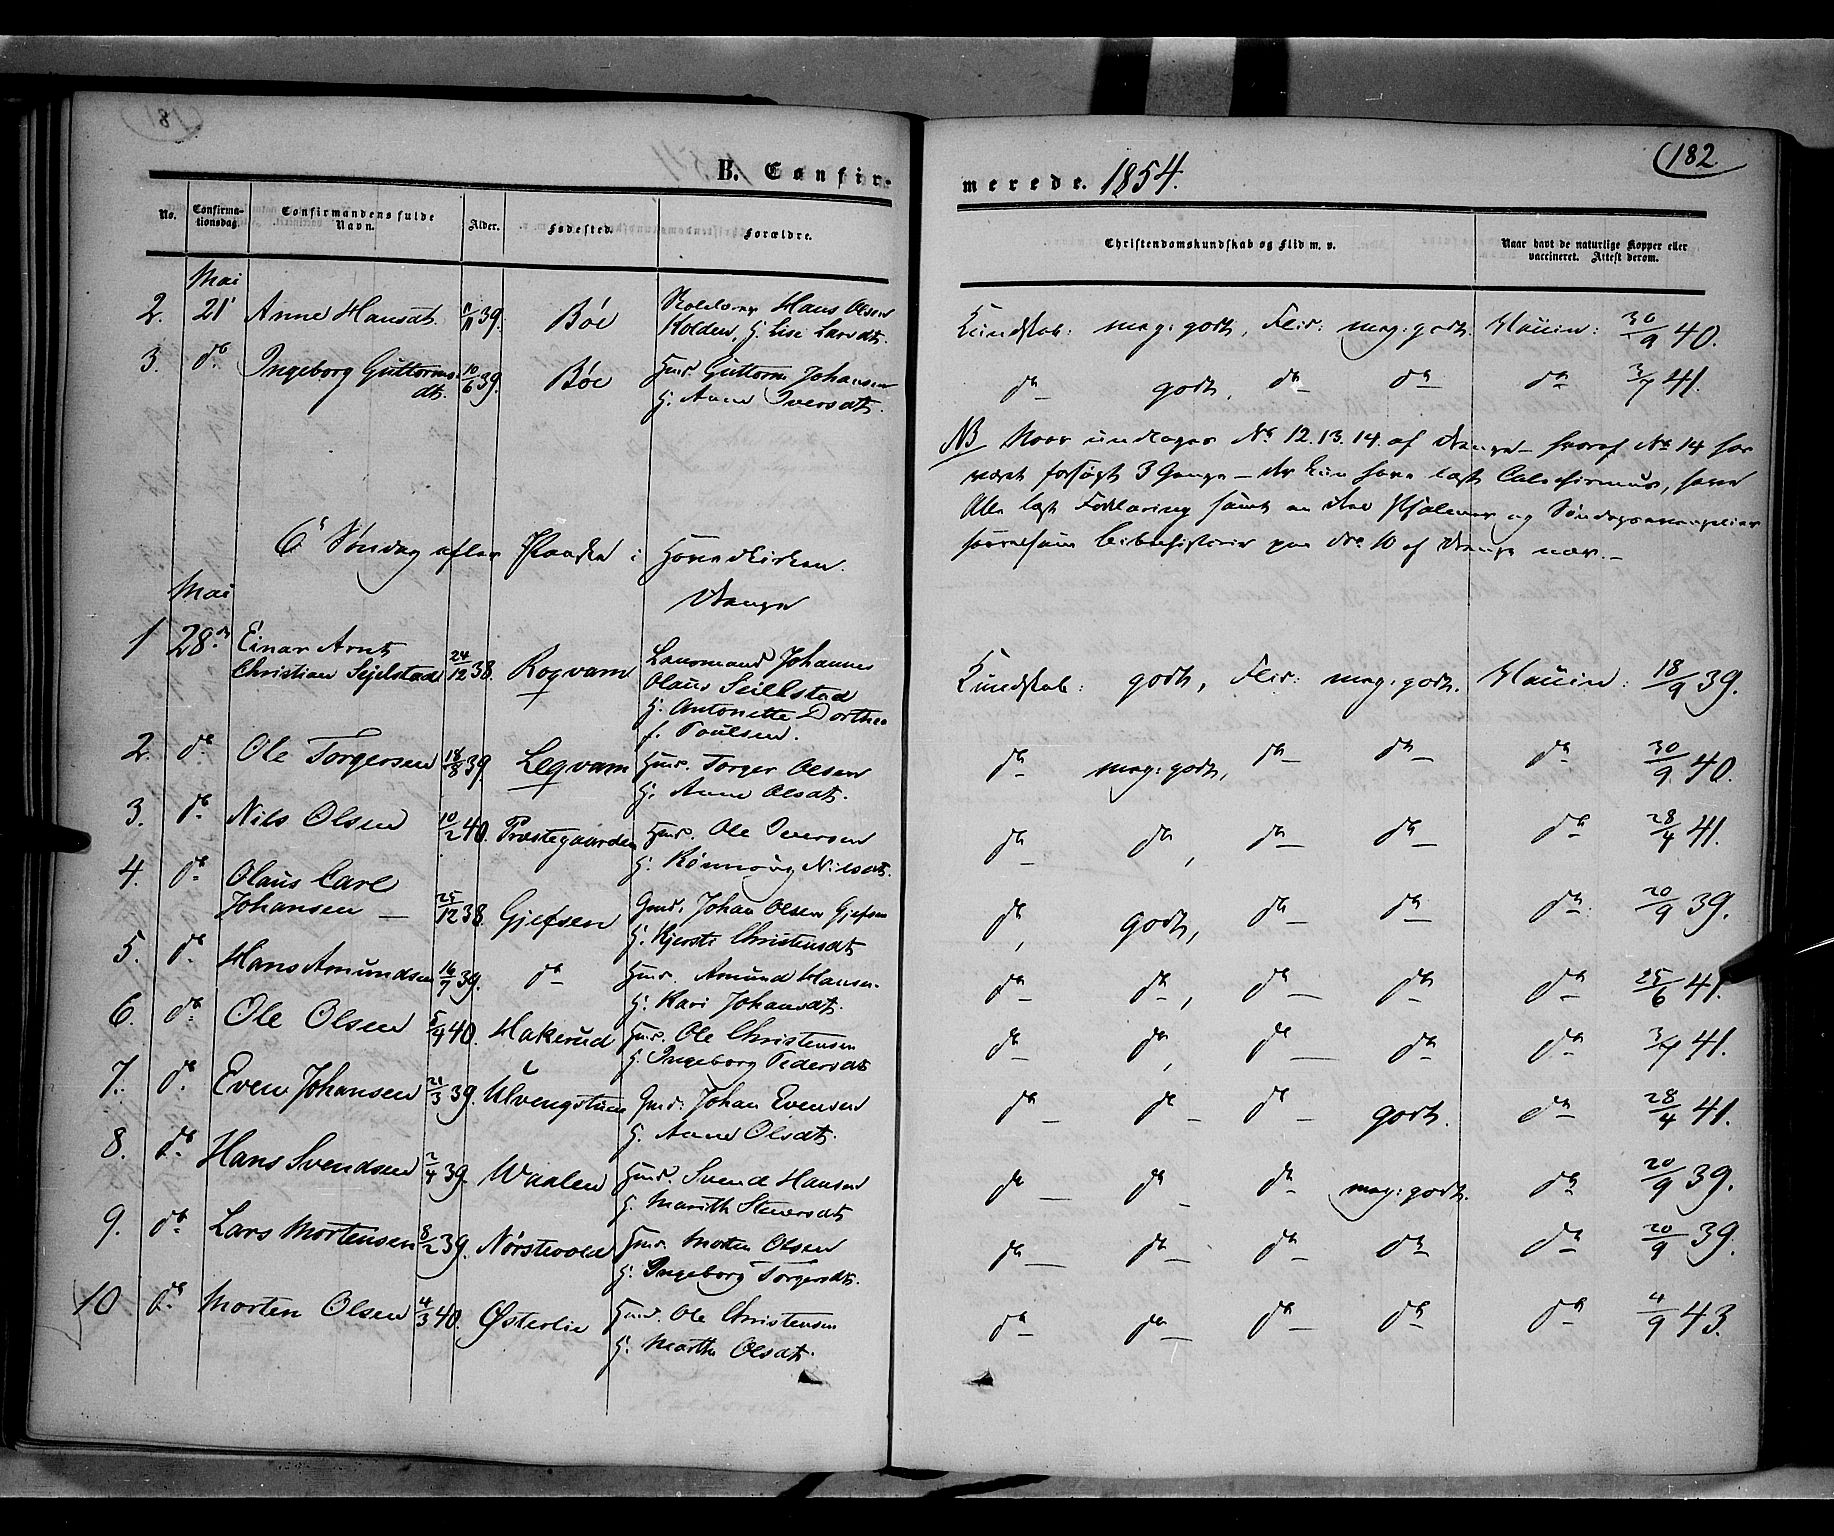 182
B. Confir-
merede. 1854.
No. Confirma-tionsdag. Confirmandens fulde Navn. Alder. Fødested. Forældre. Christendomskundskab og Flid m. v. Naar havt de naturlige Kopper eller vaccineret. Attest derom.
Mai
2. 21 Anne Hansdt. 11/11 39. Böe Hans Olsen
Kolden, H. Lise Larsdt. Kundskab: meg: godt, Flid: meg: godt. Vaccin: 30/9 40.
3. do Ingeborg Guttorms-
dt. 10/6 39. Böe Hmd. Guttorm Johansen
H. Anne Iversdt. do godt, do do do 3/7 41.
NB No 12. 13. 14. af Drenge - hvoraf No 14 har
været forsøgt 3 Gange - der kun have læst Catechismus, have
Alle læst Forklaring samt en Deel Psalmer og
Bibelhistorie No 10 af Drenge
6te Søndag efter Paaske i Hovedkirken.
Mai
Drenge
1 28de Einar Arnt
Christian Sejelstad 24/12 38. Roqvam Lensmand Johannes
Olaus Seilstad
H. Antonette Dorthea
f. Poulsen. Kundskab: godt, Flid: meg: godt. Vaccin: 18/9 39.
2. do Ole Torgersen 18/8 39 Leqvam Hmd. Torger Olsen
H. Anne Olsdt. do meg: godt, do do do 30/9 40.
3. do Nils Olsen 10/2 40. Præstegaarden Hmd. Ole Iversen
H. Rønnoug Nilsdt. do do, do do do 28/4 41.
4. do Olaus Carl
Johansen 25/12 38. Gjefsen Gmd. Johan Olsen Gjefsen
H. Kjersti Christensdt. do, godt, do do do: 20/9 39.
5. do Hans Amundsen 16/7 39. do Hmd. Amund Hansen
H. Kari Johansdt. do do, do do do 25/6 41.
6. do Ole Olsen 5/4 40. Hakerud Hmd. Ole Christensen
H. Ingeborg Pedersdt. do do, do do do 3/7 41.
7. do Even Johansen 21/3 39. Ulvengstuen Gmd: Johan Evensen
H. Anne Olsdt. do do do godt. do 28/4 41.
8. do Hans Svendsen 2/4 39. Waalen Hmd. Svend Hansen
H. Marith do do do meg: godt. do 20/9 39.
9. do Lars Mortensen 8/2 39. Nørstevold Hmd. Morten Olsen
H. Ingeborg Torgersdt. do do do do do 20/9 39.
10 do Morten Olsen 4/3 40. Østerlie Hmd. Ole Christensen
H. Marthe Olsdt. do do do do do 4/9 43.